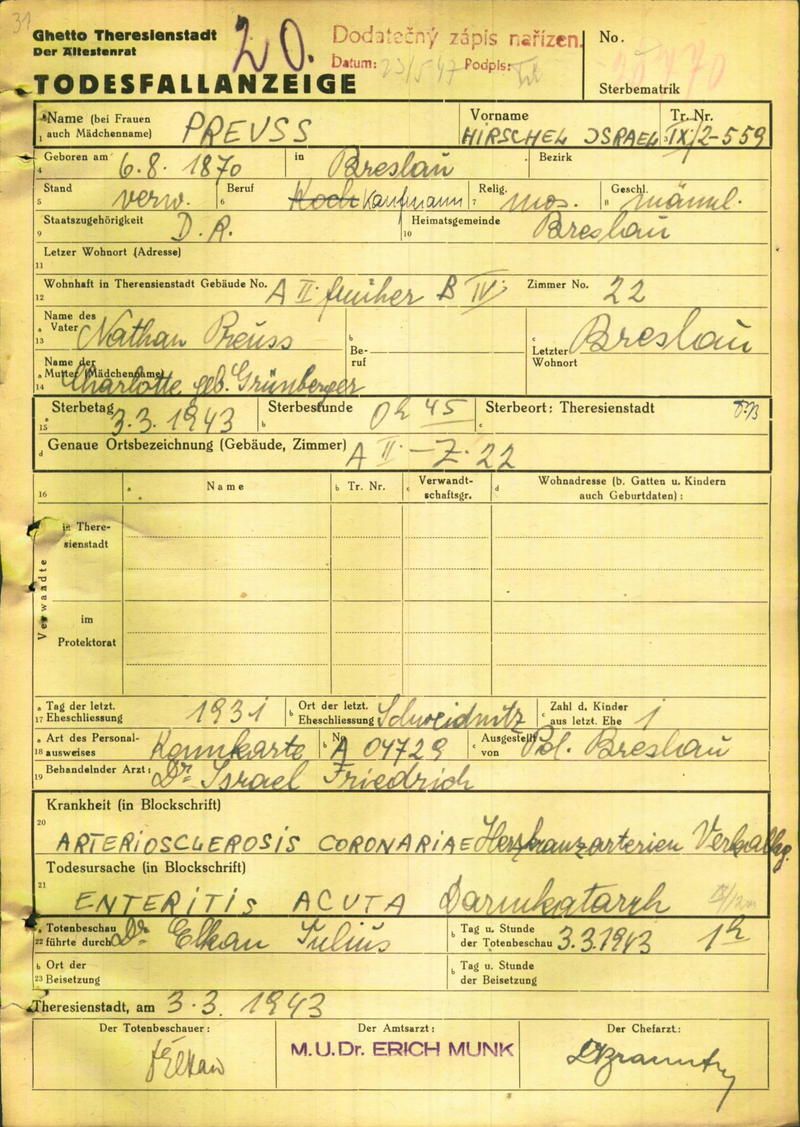 31
Ghetto Theresienstadt
Der Ältestenrat
20.
Dodatečný zápis nařízen.
Datum: 23/5 47 Podpis:
No.
TODESFALLANZEIGE
Sterbematrik
Name (bei Frauen auch Mädchenname) PREUSS Vorname HIRSCHEL ISRAEL Tr. Nr. IX/2-559
1 3
Geboren am 6.8. 1870 in Breslau Bezirk
4
Stand verw. Beruf Koch Kaufmann Relig. mos. Geschl. männl.
5 6 7 8
Staatszugehörigkeit D.R. Heimatsgemeinde Breslau
9 10
Letzer Wohnort (Adresse)
11
Wohnhaft in Theresienstadt Gebäude No. A II früher B IV Zimmer No. 22
12
Name des
a Vater Nathan Preuss
13
b Beruf
c Letzter Wohnort Breslau
Name der
a Mutter (Mädchenname) Charlotte geb. Grünberger
14
a Sterbetag 3.3. 1943 b Sterbestunde 0h 45 c Sterbeort: Theresienstadt
15
d Genaue Ortsbezeichnung (Gebäude, Zimmer) A II - Z. 22
16 a Name b Tr. Nr. c Verwandtschaftsgr. d Wohnadresse (b. Gatten u. Kindern auch Geburtdaten):
Verwandte
in Theresienstadt
im Protektorat
a Tag der letzt.
17 Eheschliessung 1931 b Ort der letzt. Eheschliessung Schweidnitz c Zahl d. Kinder aus letzt. Ehe 1
a Art des Personal-
18 ausweises Kennkarte b No A 04729 c Ausgestellt von Pol. Breslau
19 Behandelnder Arzt: Dr Israel Friedrich
Krankheit (in Blockschrift)
20
ARTERIOSCLEROSIS CORONARIAE Herzkranzarterien Verkalkg.
Todesursache (in Blockschrift)
21
ENTERITIS ACUTA Darmkatarrh
a Totenbeschau
22 führte durch Dr Elkan Julius b Tag u. Stunde der Totenbeschau 3.3.1943 1h
b Ort der
23 Beisetzung b Tag u. Stunde der Beisetzung
Theresienstadt, am 3.3. 1943
Der Totenbeschauer: Der Amtsarzt: Der Chefarzt:
Elkan
M.U.Dr. ERICH MUNK